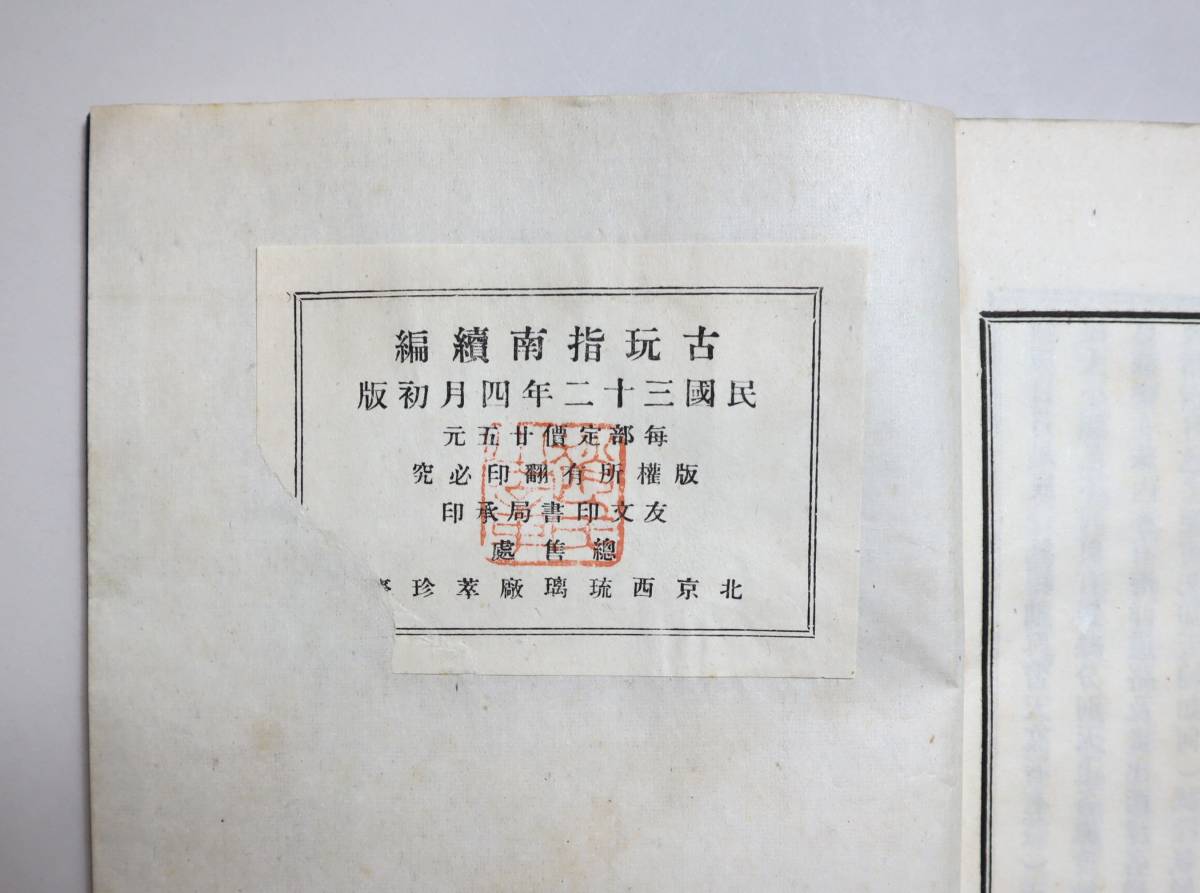 古玩指南續編
民國三十二年四月初版
每部定價廿五元
版權所有翻印必究
友文印書局承印
總售處
北京西琉璃廠萃珍